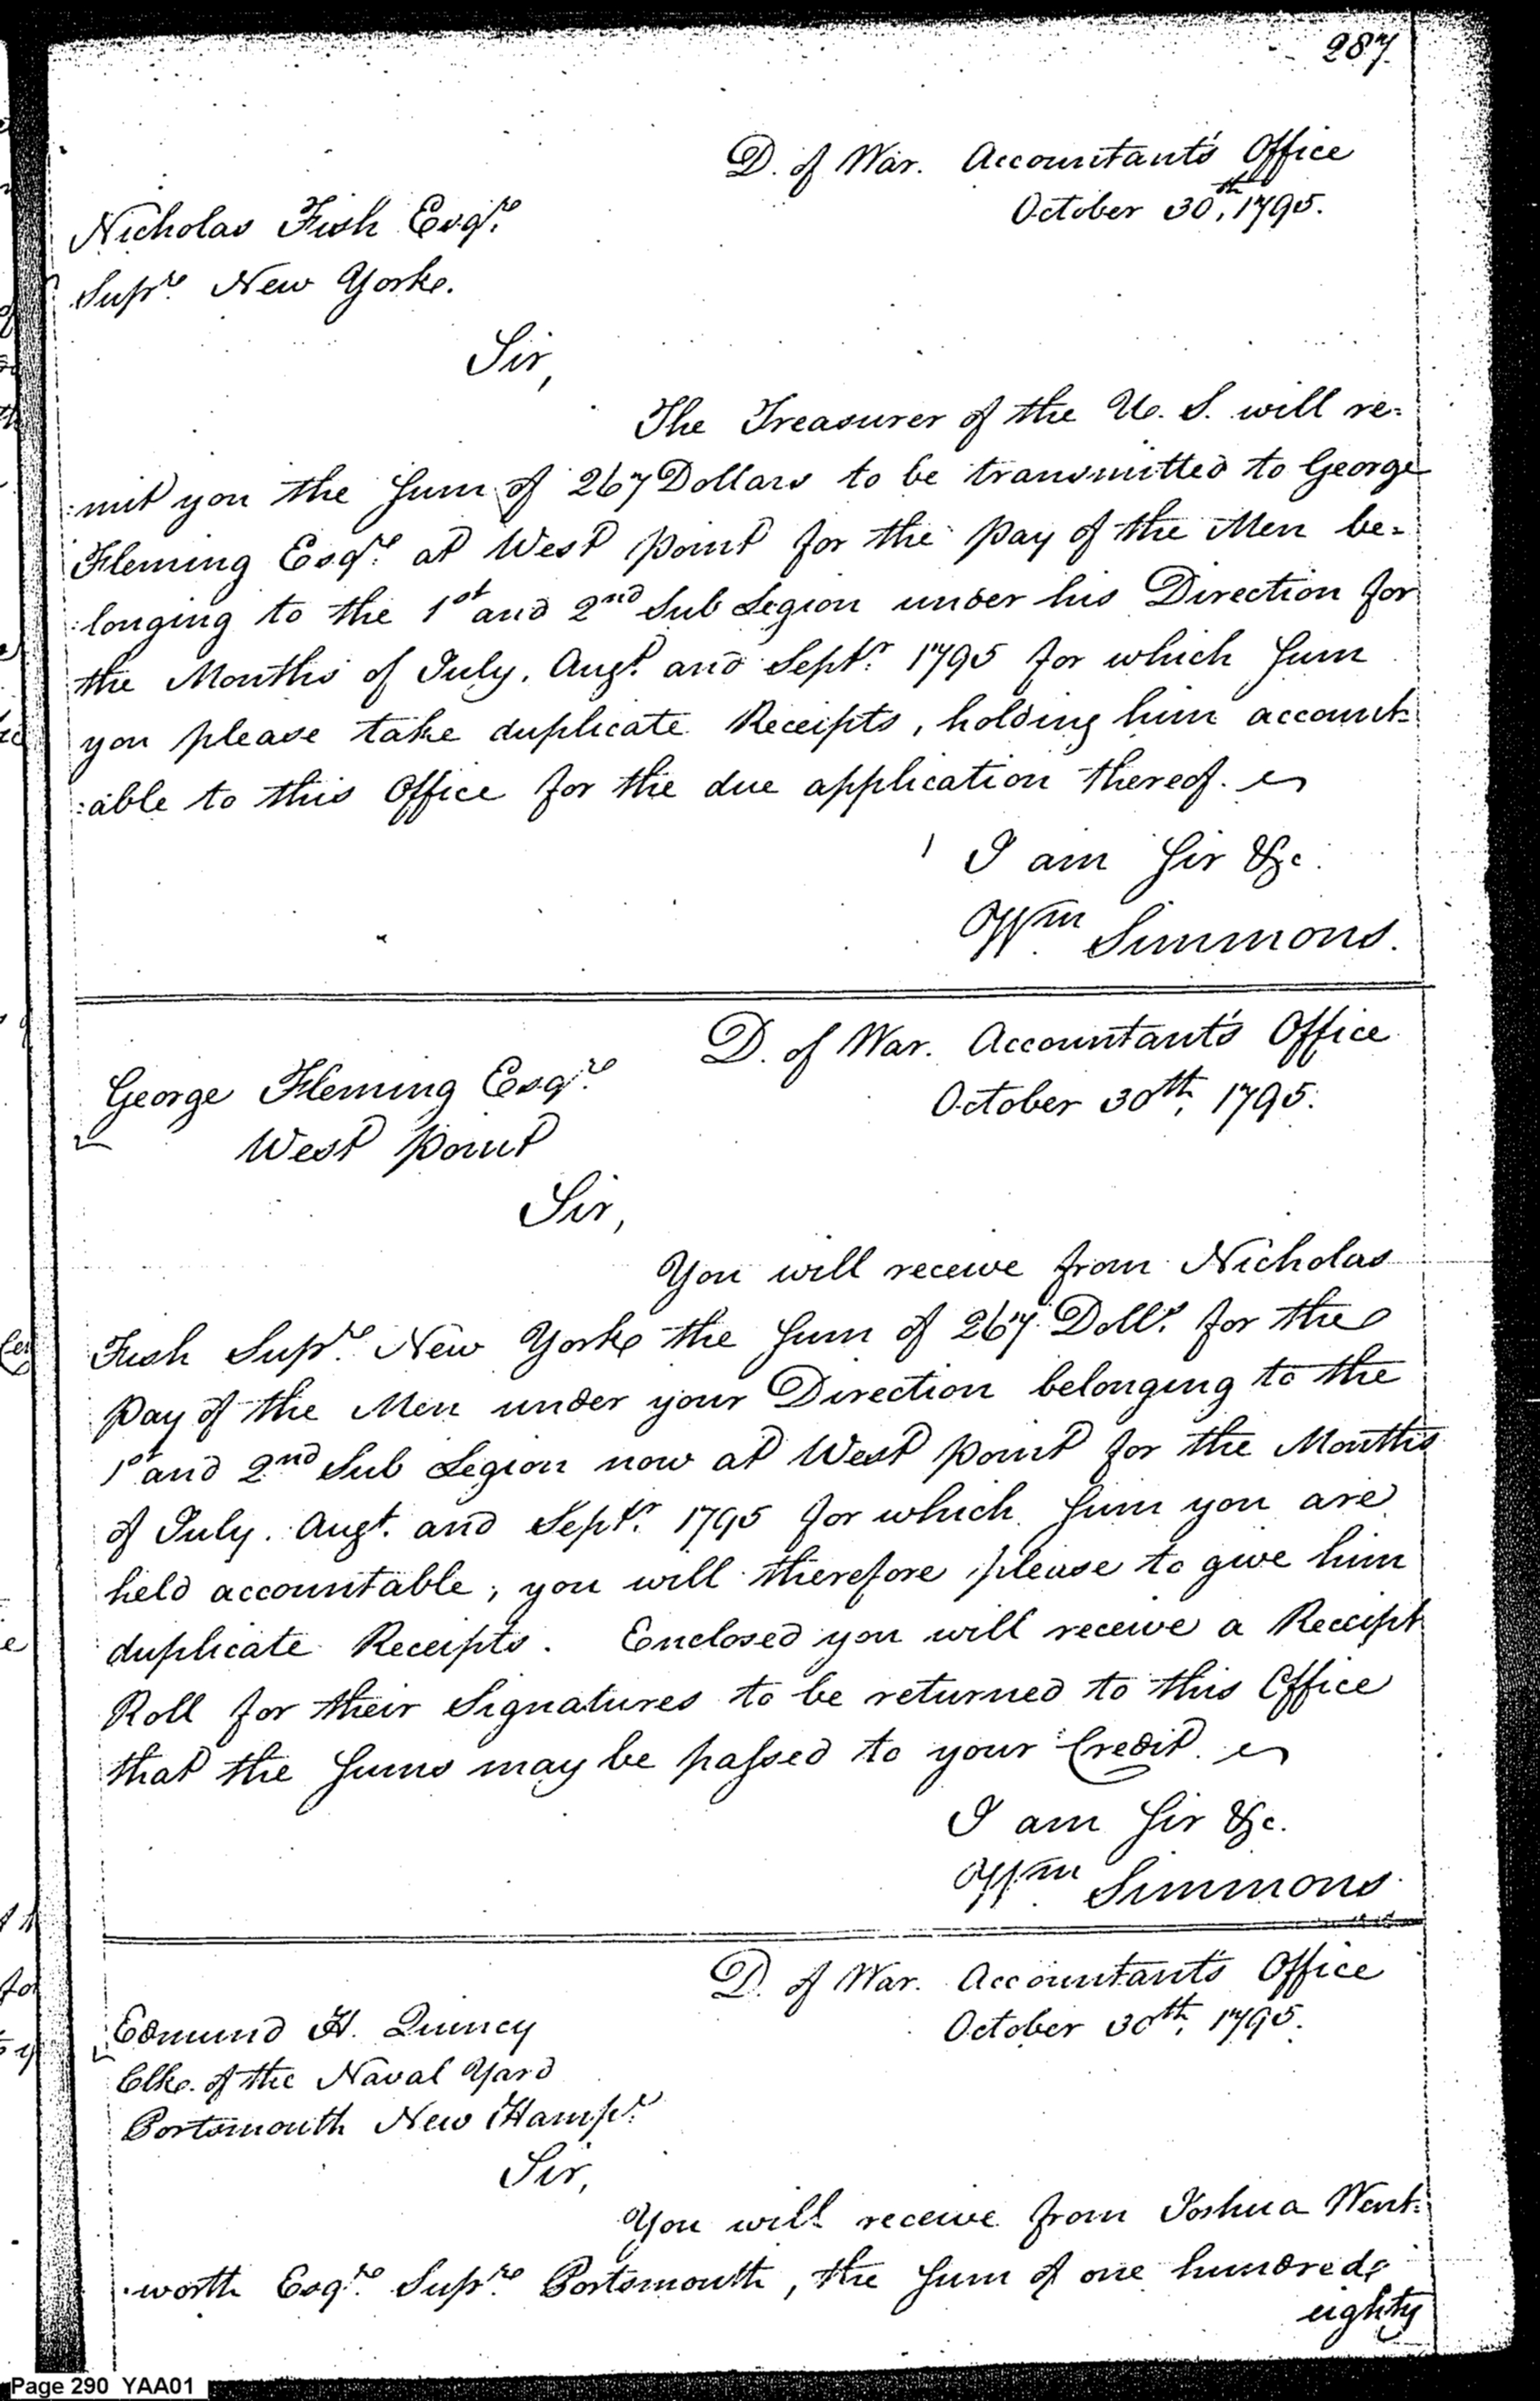 287.
D. of War. Accountant's Office
October 30th, 1795.
Nicholas Fish Esqre
Supre New Yorke.
Sir,
The Treasurer of the U. S. will re=
:mit you the Sum of 267 Dollars to be transmitted to George
Fleming Esqre at West Point for the Pay of the Men be=
:longing to the 1st and 2nd Sub Legion under his Direction for
the Months of July, Augt. and Septr. 1795 for which Sum
you please take duplicate Receipts, holding him account=
:able to this Office for the due application thereof.
I am Sir &c.
Wm Simmons.
D. of War. Accountant's Office
October 30th, 1795.
George Fleming Esqre
West Point
Sir,
You will receive from Nicholas
Fish Supre New Yorke the Sum of 267 Dolls. for the
Pay of the Men under your Direction belonging to the
1st and 2nd Sub Legion now at West Point for the Months
of July. Augt. and Septr. 1795 for which Sum you are
held accountable, you will therefore please to give him
duplicate Receipts. Enclosed you will receive a Receipt
Roll for their Signatures to be returned to this Office
that the Sums may be passed to your Credit.
I am Sir &c.
Wm Simmons
D. of War. Accountant's Office
October 30th, 1795.
Edmund H. Quincy
Clke. of the Naval Yard
Portsmouth New Hampre
Sir,
You will receive from Joshua Went=
:worth Esqre Supre Portsmouth, the Sum of one hundred &
eighty
Page 290 YAA01